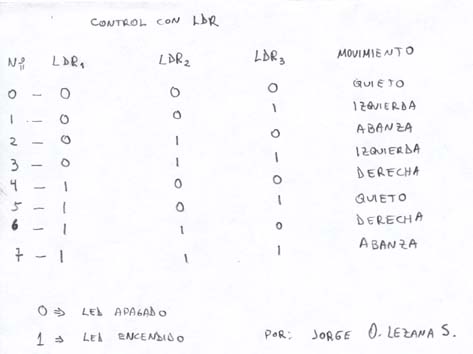 CONTROL CON LDR
Nº LDR1 LDR2 LDR3 MOVIMIENTO
0 - 0 0 0 QUIETO
1 - 0 0 1 IZQUIERDA
2 - 0 1 0 ABANZA
3 - 0 1 1 IZQUIERDA
4 - 1 0 0 DERECHA
5 - 1 0 1 QUIETO
6 - 1 1 0 DERECHA
7 - 1 1 1 ABANZA
0 ⇒ LED APAGADO
1 ⇒ LED ENCENDIDO POR: JORGE O. LEZANA S.